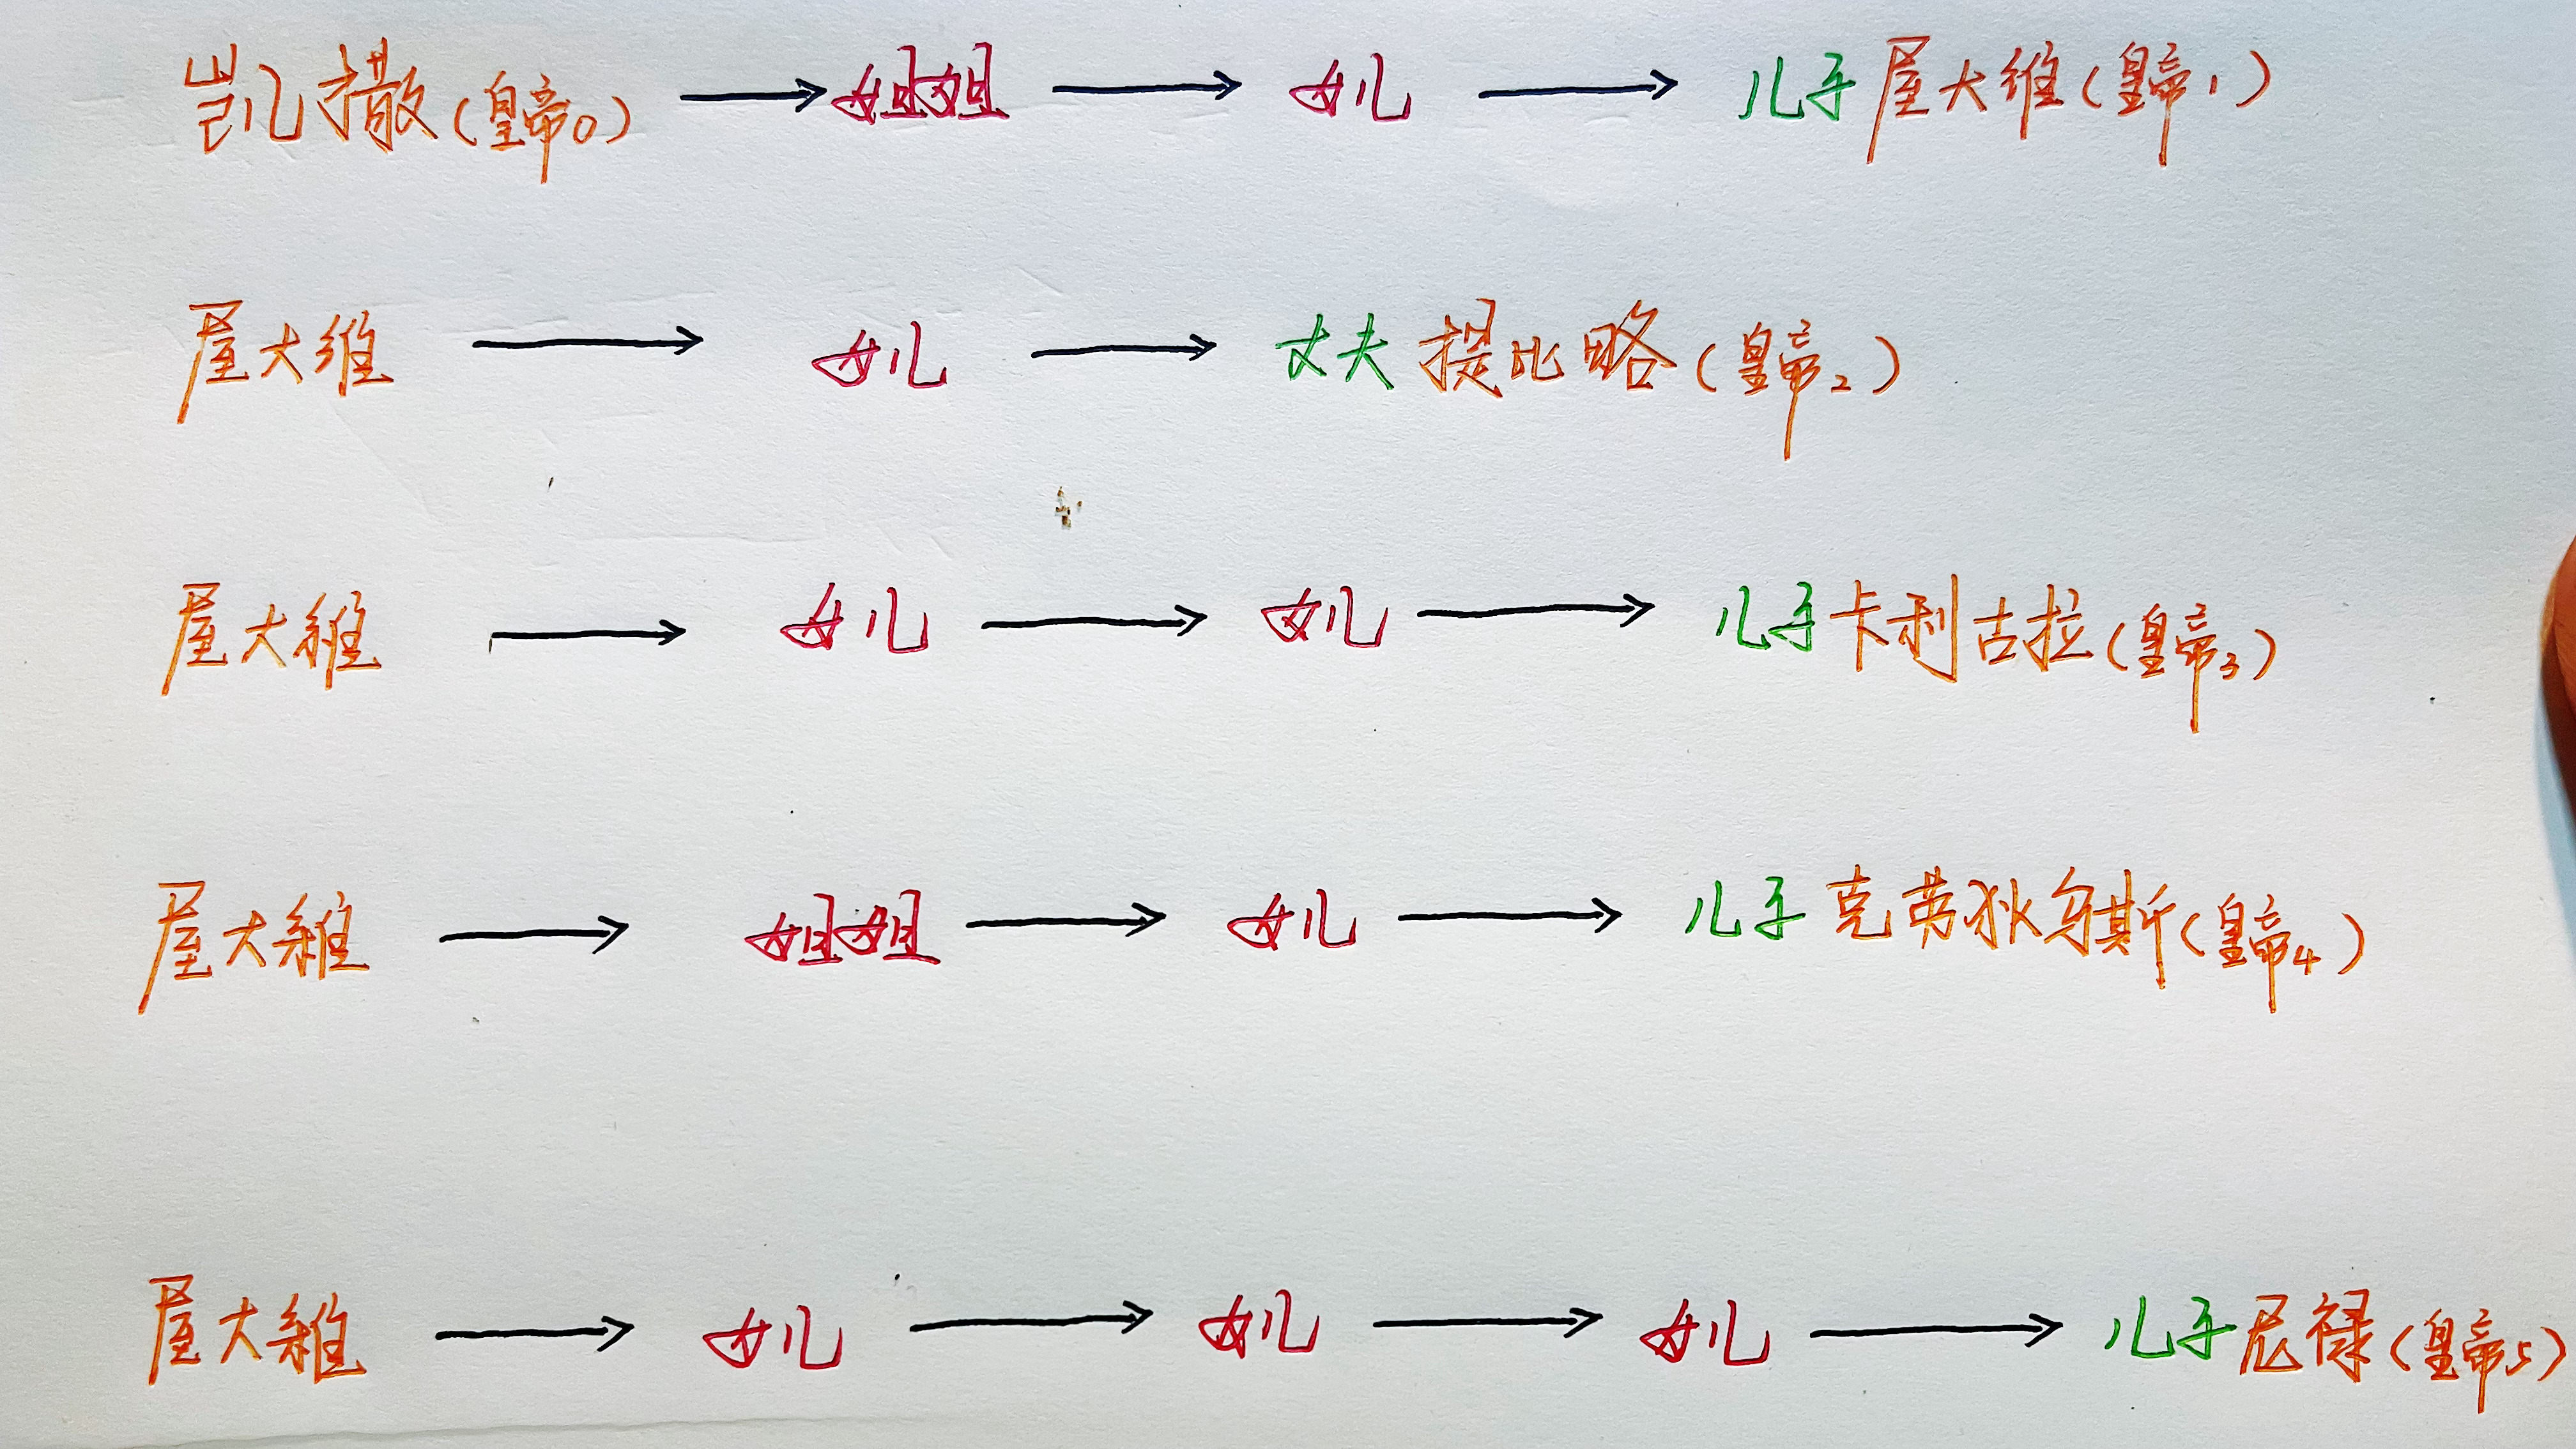 凯撒(皇帝0) → 姐姐 → 女儿 → 儿子屋大维(皇帝1)
屋大维 → 女儿 → 丈夫提比略(皇帝2)
屋大維 → 女儿 → 女儿 → 儿子卡利古拉(皇帝3)
屋大維 → 姐姐 → 女儿 → 儿子克劳狄乌斯(皇帝4)
屋大維 → 女儿 → 女儿 → 女儿 → 儿子尼禄(皇帝5)